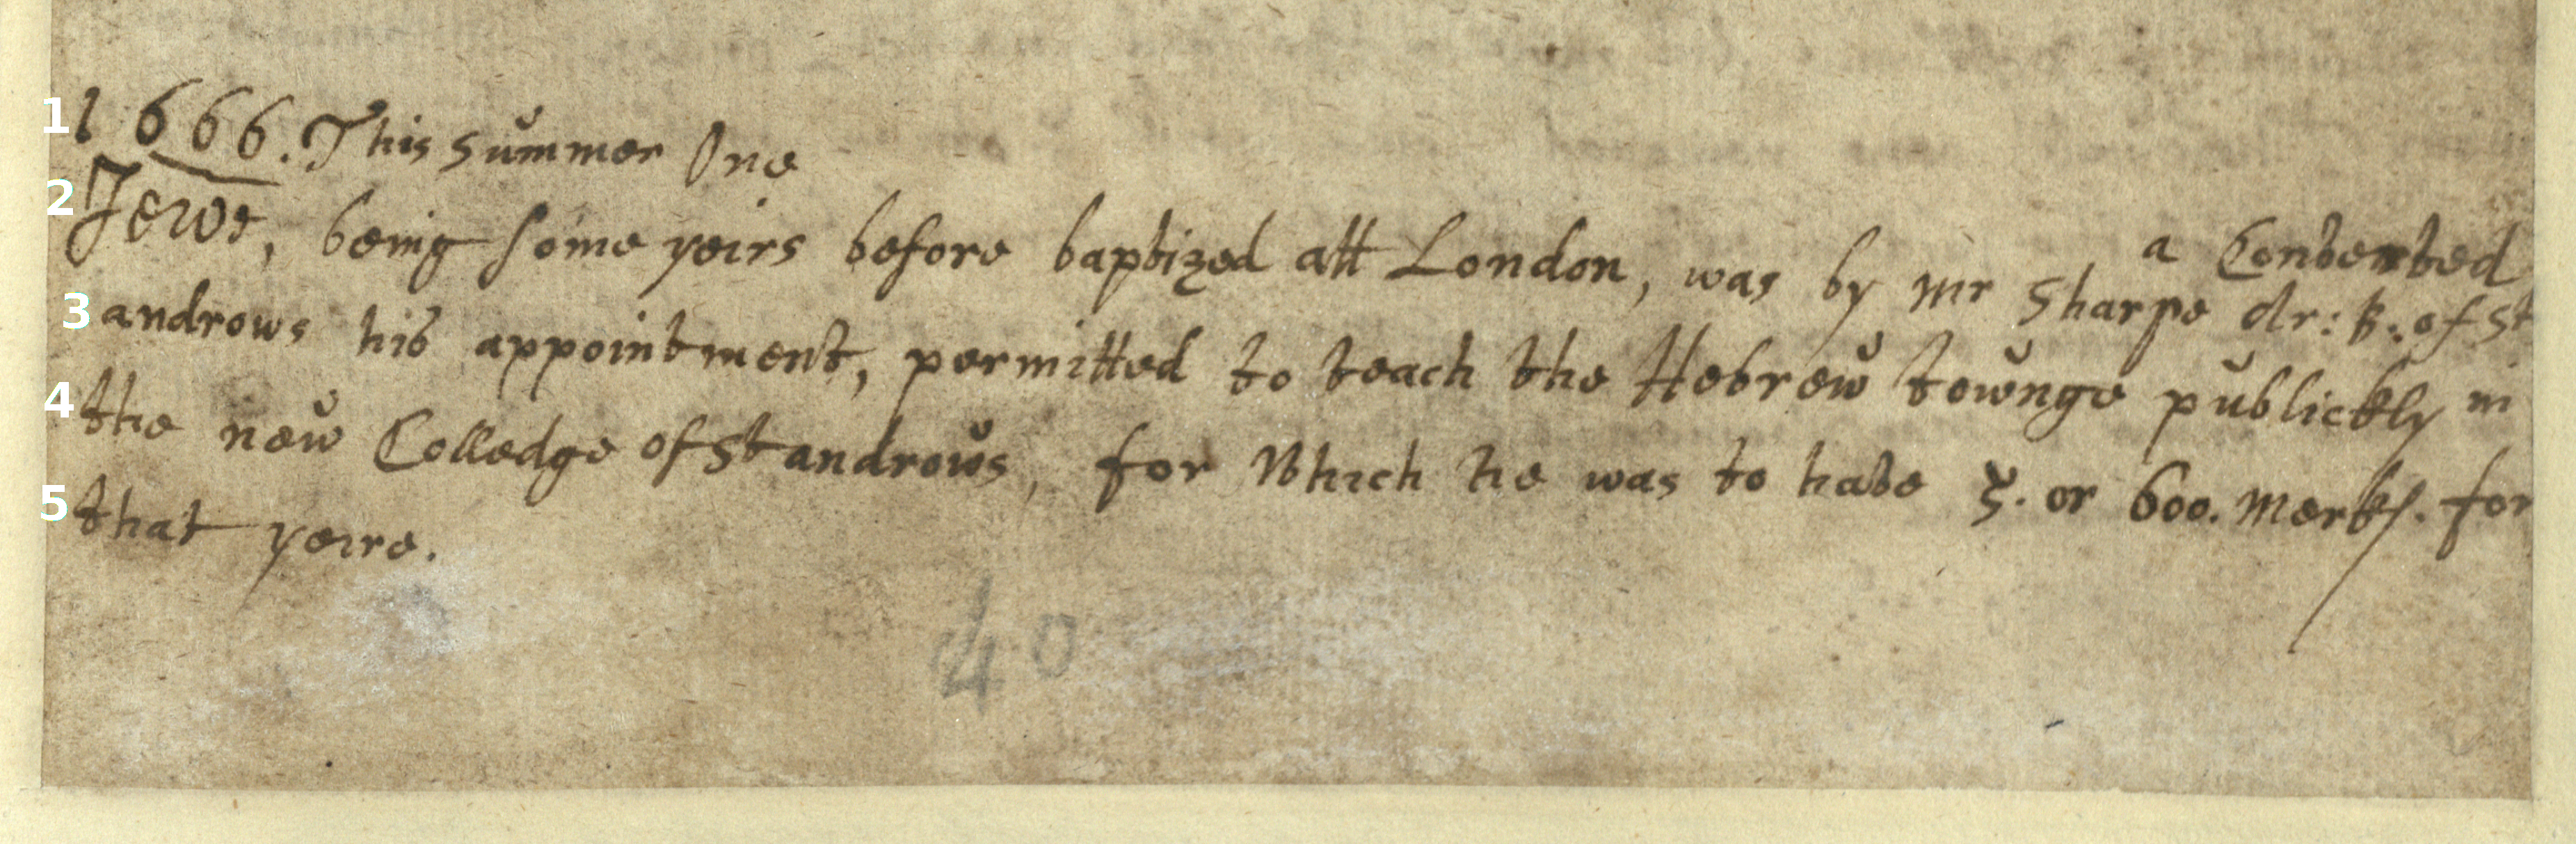 1 1666. This summer One a Converted
2 Jewe, being some yeirs before baptized att London, was by Mr Sharpe dr: B: of St
3 androws his appointment, permitted to teach the Hebrew townge publickly in
4 the new Colledge of St androws, for Which he was to have 5. or 600. merks. for
5 that yeire.
40